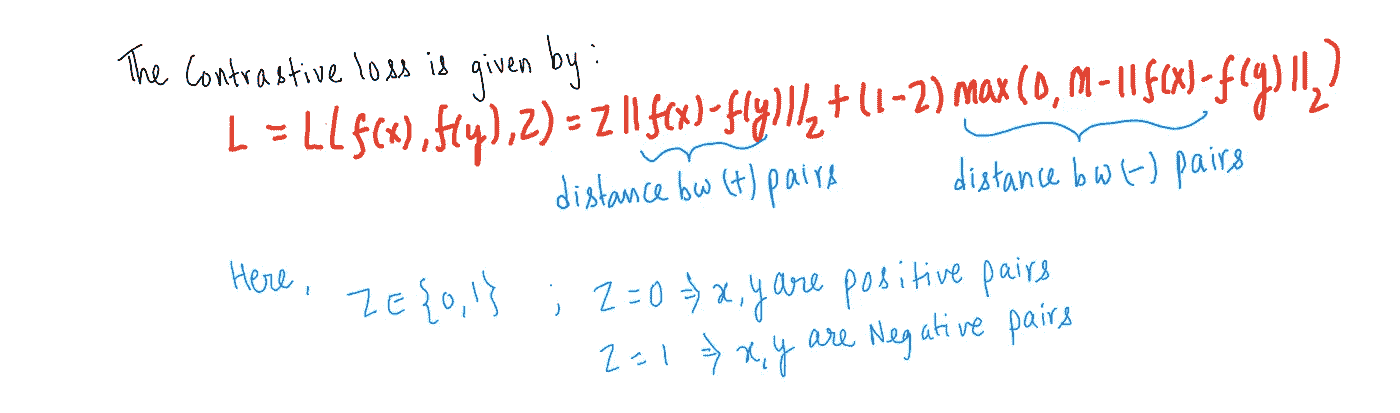 The Contrastive loss is given by:
L = L(f(x), f(y), Z) = Z ||f(x)-f(y)||₂ + (1-Z) max(0, m-||f(x)-f(y)||₂)
distance bw (+) pairs distance bw (-) pairs
Here, Z ∈ {0,1} ; Z=0 ⇒ x,y are positive pairs
Z=1 ⇒ x,y are Negative pairs